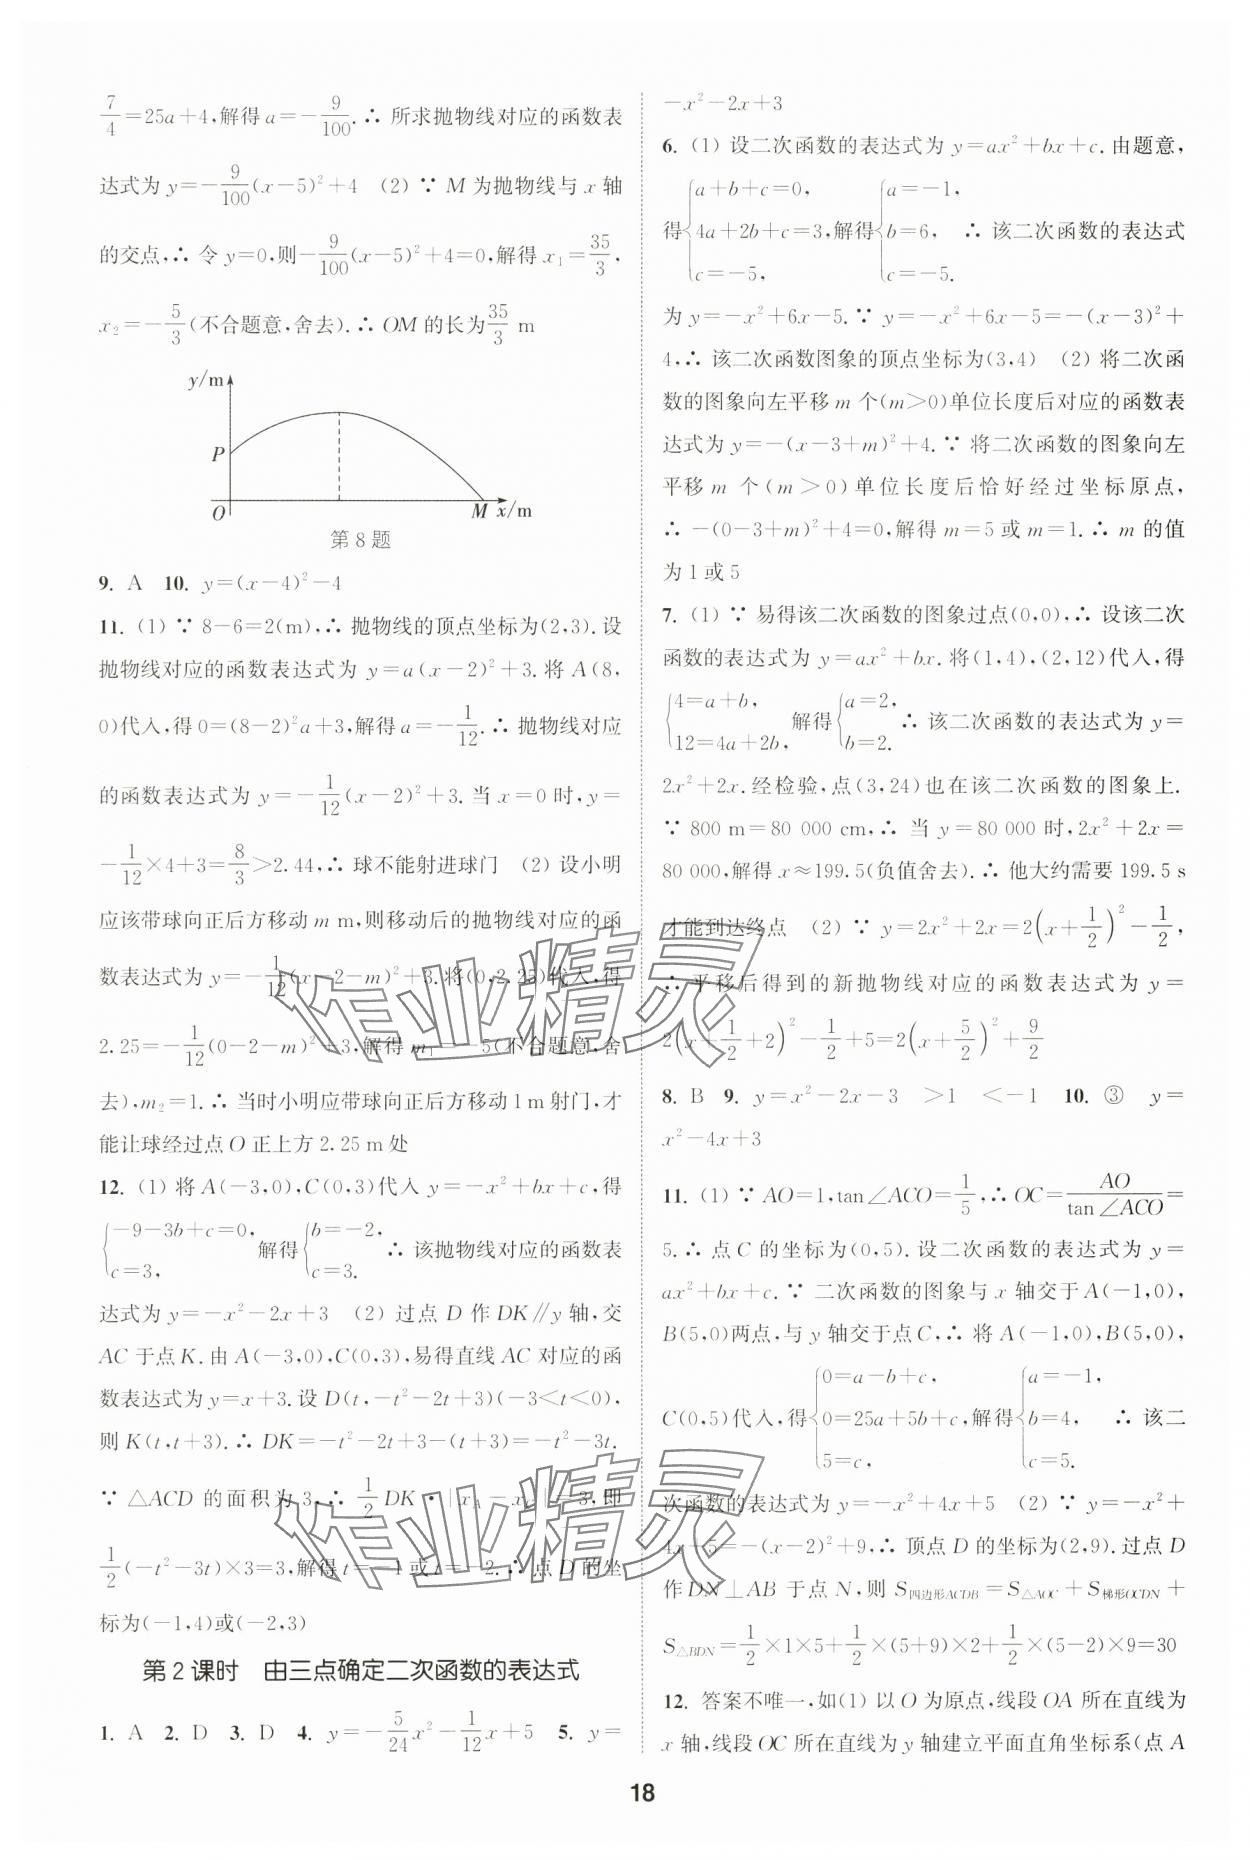 7/4=25a+4,解得a=-9/100.∴ 所求抛物线对应的函数表
达式为 y=-9/100(x-5)²+4 (2) ∵ M 为抛物线与 x 轴
的交点,∴ 令 y=0,则-9/100(x-5)²+4=0,解得 x₁=35/3,
x₂=-5/3(不合题意,舍去).∴ OM 的长为35/3 m
y/m
P
O
M x/m
第 8 题
9. A 10. y=(x-4)²-4
11. (1) ∵ 8-6=2(m),∴ 抛物线的顶点坐标为(2,3).设
抛物线对应的函数表达式为 y=a(x-2)²+3.将 A(8,
0)代入,得 0=(8-2)²a+3,解得 a=-1/12.∴ 抛物线对应
的函数表达式为 y=-1/12(x-2)²+3.当 x=0 时,y=
-1/12×4+3=8/3>2.44,∴ 球不能射进球门 (2) 设小明
应该带球向正后方移动 m m,则移动后的抛物线对应的函
数表达式为 y=-1/12(x-2-m)²+3.将(0,2.25)代入,得
2.25=-1/12(0-2-m)²+3,解得 m₁=-5(不合题意,舍
去),m₂=1.∴ 当时小明应带球向正后方移动 1 m 射门,才
能让球经过点 O 正上方 2.25 m 处
12. (1) 将 A(-3,0),C(0,3)代入 y=-x²+bx+c,得
{-9-3b+c=0, c=3, 解得{b=-2, c=3. ∴ 该抛物线对应的函数表
达式为 y=-x²-2x+3 (2) 过点 D 作 DK∥y 轴,交
AC 于点 K.由 A(-3,0),C(0,3),易得直线 AC 对应的函
数表达式为 y=x+3.设 D(t,-t²-2t+3)(-3<t<0),
则 K(t,t+3).∴ DK=-t²-2t+3-(t+3)=-t²-3t.
∵ △ACD 的面积为 3,∴ 1/2DK·|x_A-x_C|=3,即
1/2(-t²-3t)×3=3,解得 t=-1 或 t=-2.∴ 点 D 的坐
标为(-1,4)或(-2,3)
第 2 课时 由三点确定二次函数的表达式
1. A 2. D 3. D 4. y=-5/24x²-1/12x+5 5. y=
-x²-2x+3
6. (1) 设二次函数的表达式为 y=ax²+bx+c.由题意,
得{a+b+c=0, 4a+2b+c=3, c=-5, 解得{a=-1, b=6, c=-5. ∴ 该二次函数的表达式
为 y=-x²+6x-5.∵ y=-x²+6x-5=-(x-3)²+
4,∴ 该二次函数图象的顶点坐标为(3,4) (2) 将二次函
数的图象向左平移 m 个(m>0)单位长度后对应的函数表
达式为 y=-(x-3+m)²+4.∵ 将二次函数的图象向左
平移 m 个(m>0)单位长度后恰好经过坐标原点,
∴ -(0-3+m)²+4=0,解得 m=5 或 m=1.∴ m 的值
为 1 或 5
7. (1) ∵ 易得该二次函数的图象过点(0,0),∴ 设该二次
函数的表达式为 y=ax²+bx.将(1,4),(2,12)代入,得
{4=a+b, 12=4a+2b, 解得{a=2, b=2. ∴ 该二次函数的表达式为 y=
2x²+2x.经检验,点(3,24)也在该二次函数的图象上.
∵ 800 m=80 000 cm,∴ 当 y=80 000 时,2x²+2x=
80 000,解得 x≈199.5(负值舍去).∴ 他大约需要 199.5 s
才能到达终点 (2) ∵ y=2x²+2x=2(x+1/2)²-1/2,
∴ 平移后得到的新抛物线对应的函数表达式为 y=
2(x+1/2+2)²-1/2+5=2(x+5/2)²+9/2
8. B 9. y=x²-2x-3 >1 <-1 10. ③ y=
x²-4x+3
11. (1) ∵ AO=1,tan∠ACO=1/5,∴ OC=AO/tan∠ACO=
5.∴ 点 C 的坐标为(0,5).设二次函数的表达式为 y=
ax²+bx+c.∵ 二次函数的图象与 x 轴交于 A(-1,0),
B(5,0)两点,与 y 轴交于点 C,∴ 将 A(-1,0),B(5,0),
C(0,5)代入,得{0=a-b+c, 0=25a+5b+c, 5=c, 解得{a=-1, b=4, c=5. ∴ 该二
次函数的表达式为 y=-x²+4x+5 (2) ∵ y=-x²+
4x+5=-(x-2)²+9,∴ 顶点 D 的坐标为(2,9).过点 D
作 DN⊥AB 于点 N,则 S四边形ACDB=S△AOC+S梯形OCDN+
S△BDN=1/2×1×5+1/2×(5+9)×2+1/2×(5-2)×9=30
12. 答案不唯一,如(1) 以 O 为原点,线段 OA 所在直线为
x 轴,线段 OC 所在直线为 y 轴建立平面直角坐标系(点 A
18
作业精灵
作业精灵